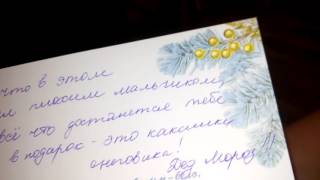 что в этом
плохим мальчиком,
всё что достанется тебе
в подарок - это какашки
снеговика!
Дед Мороз